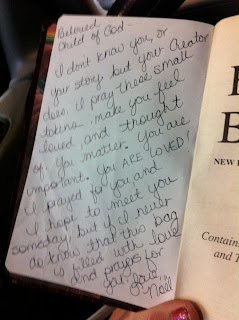 Beloved
Child of God -
I don't know you, or
your story but your Creator
does. I pray these small
tokens make you feel
loved and thought
of. You matter. You are
important. You ARE LOVED!
I prayed for you and
I hope to meet you
someday, but if I never
do know that this bag
is filled with love
and prayers for
you.
NEW
Contain
and T